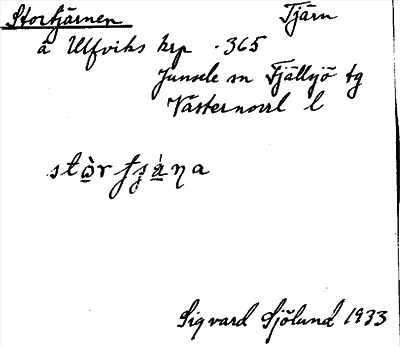 Stortjärnen Tjärn
å Ulfviks krp . 365
Junsele sn Fjällsjö tg
Västernorrl l
Sigvard Sjölund 1933